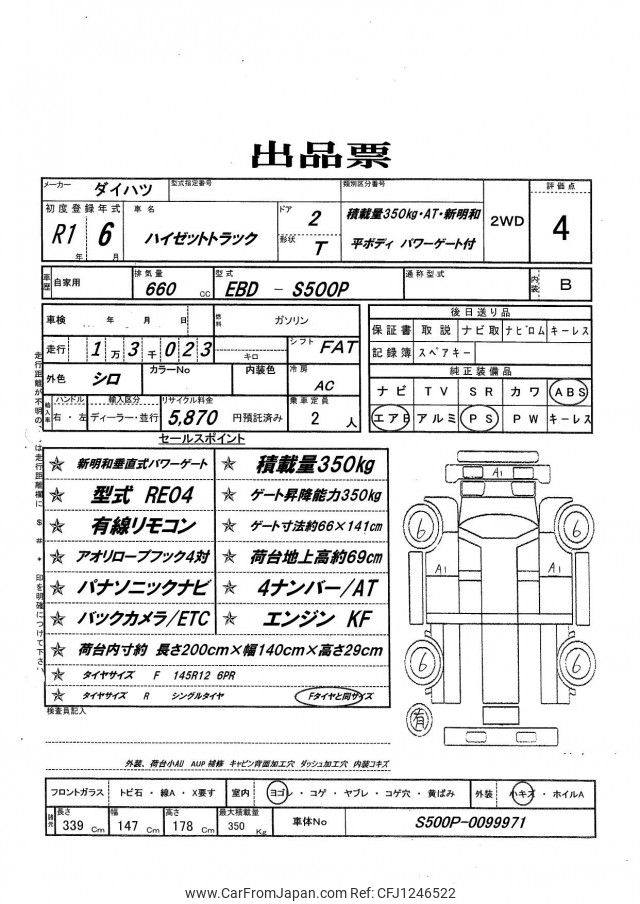 出品票
メーカー ダイハツ 型式指定番号 類別区分番号 評価点
初度登録年式 車名 ドア
R1 年 6 月 ハイゼットトラック 2 形状 T 積載量350kg・AT・新明和 平ボディ パワーゲート付 2WD 4
車歴 自家用 排気量 660 cc 型式 EBD - S500P 通称型式 内装 B
車検 年 月 日 燃料 ガソリン
走行 1万3千023 キロ シフト FAT
外色 シロ カラーNo 内装色 冷房 AC
輸入車 ハンドル 右・左 輸入区分 ディーラー・並行 リサイクル料金 5,870 円預託済み 乗車定員 2 人
後日送り品
保証書 取説 ナビ取 ナビロム キーレス
記録簿 スペアキー
純正装備品
ナビ TV SR カワ ABS
エアB アルミ PS PW キーレス
セールスポイント
☆ 新明和垂直式パワーゲート ☆ 積載量350kg
☆ 型式 RE04 ☆ ゲート昇降能力350kg
☆ 有線リモコン ☆ ゲート寸法約66×141cm
☆ アオリロープフック4対 ☆ 荷台地上高約69cm
☆ パナソニックナビ ☆ 4ナンバー/AT
☆ バックカメラ/ETC ☆ エンジン KF
☆ 荷台内寸約 長さ200cm×幅140cm×高さ29cm
☆ タイヤサイズ F 145R12 6PR
☆ タイヤサイズ R シングルタイヤ Fタイヤと同サイズ
走行距離が不明の、は走行距離欄に $ # * 印を明確につけて下さい
A1
6 6
A1 A1
6 6
有
検査員記入
外装、荷台小AU AUP補修 キャビン背面加工穴 ダッシュ加工穴 内装コキズ
フロントガラス トビ石・線A・X要す 室内 ヨゴレ・コゲ・ヤブレ・コゲ穴・黄ばみ 外装 小キズ・ホイルA
諸元 長さ 339 Cm 幅 147 Cm 高さ 178 Cm 最大積載量 350 Kg 車体No S500P-0099971
www.CarFromJapan.com Ref: CFJ1246522